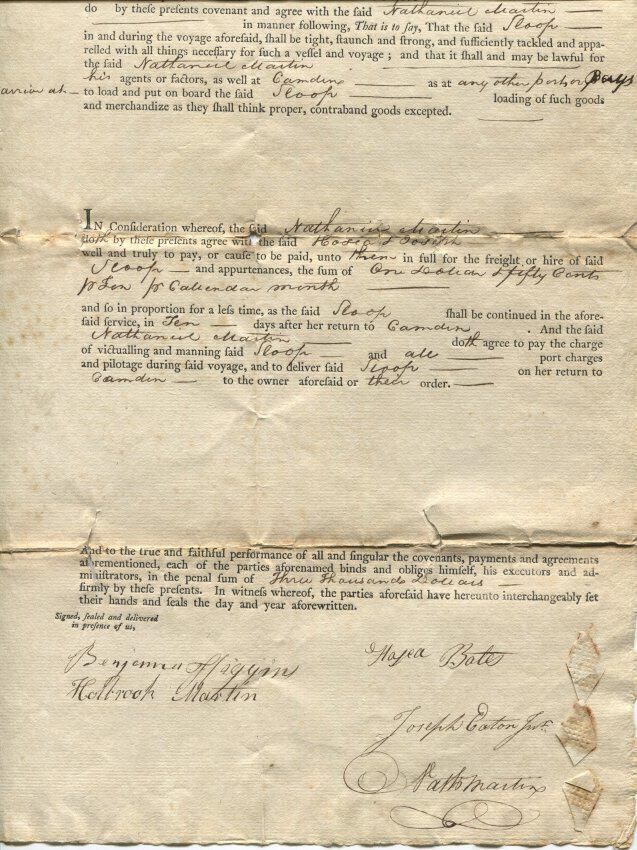 do by theſe preſents covenant and agree with the ſaid Nathaniel Martin
in manner following, That is to ſay, That the ſaid Sloop
in and during the voyage aforeſaid, ſhall be tight, ſtaunch and ſtrong, and ſufficiently tackled and appa-
relled with all things neceſſary for ſuch a veſſel and voyage ; and that it ſhall and may be lawful for
the ſaid Nathaniel Martin
his agents or factors, as well at Camden as at any other port or Ports
arrive at to load and put on board the ſaid Sloop loading of ſuch goods
and merchandize as they ſhall think proper, contraband goods excepted.
IN Conſideration whereof, the ſaid Nathaniel Martin
doth by theſe preſents agree with the ſaid Hosea & Joseph
well and truly to pay, or cauſe to be paid, unto them in full for the freight or hire of ſaid
Sloop and appurtenances, the ſum of One Dollar & fifty Cents
pr Ton pr Callendar month
and ſo in proportion for a leſs time, as the ſaid Sloop ſhall be continued in the afore-
ſaid ſervice, in Ten days after her return to Camden . And the ſaid
Nathaniel Martin doth agree to pay the charge
of victualling and manning ſaid Sloop and all port charges
and pilotage during ſaid voyage, and to deliver ſaid Sloop on her return to
Camden to the owner aforeſaid or their order.
And to the true and faithful performance of all and ſingular the covenants, payments and agreements
aforementioned, each of the parties aforenamed binds and obliges himſelf, his executors and ad-
miniſtrators, in the penal ſum of Three Thousand Dollars
firmly by theſe preſents. In witneſs whereof, the parties aforeſaid have hereunto interchangeably ſet
their hands and ſeals the day and year aforewritten.
Signed, ſealed and delivered
in preſence of us,
Benjamin Higgins
Holbrook Martin
Hosea Bates
Joseph Eaton Junr
Nathl Martin